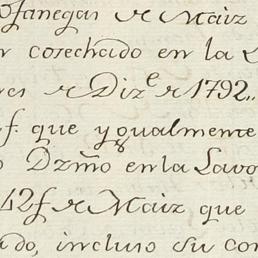 fanegas de Maiz
cosechado en la
de Diz.e de 1792..
f. que ygualmente
Dzmo en la Lavo
42f de Maiz que
ado, incluso su con